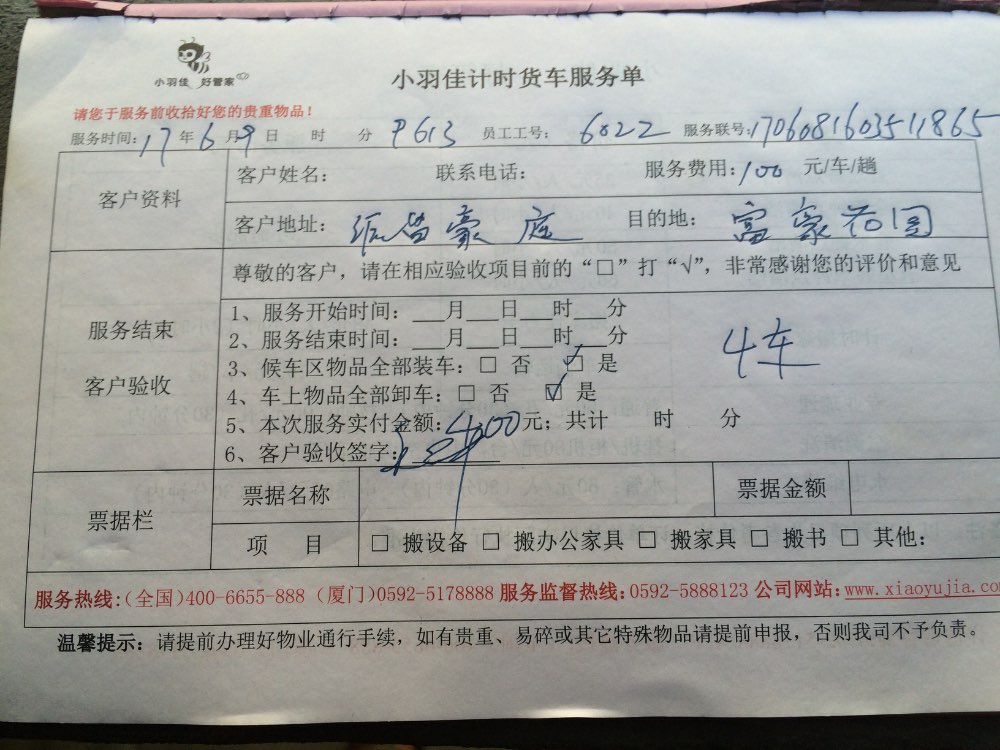 小羽佳 好管家
小羽佳计时货车服务单
请您于服务前收拾好您的贵重物品！
服务时间：17年6月9日 时 分 P613 员工工号：6022 服务联号：1706081603511865
客户资料
客户姓名： 联系电话： 服务费用：100 元/车/趟
客户地址：豪庭 目的地：富豪花园
尊敬的客户，请在相应验收项目前的“□”打“√”，非常感谢您的评价和意见
服务结束
客户验收
1、服务开始时间：___月___日___时___分
2、服务结束时间：___月___日___时___分
3、候车区物品全部装车：□ 否 ☑ 是
4、车上物品全部卸车：□ 否 ☑ 是
5、本次服务实付金额：400元；共计 时 分
6、客户验收签字：
4车
票据栏
票据名称 票据金额
项 目 □ 搬设备 □ 搬办公家具 □ 搬家具 □ 搬书 □ 其他：
服务热线：(全国)400-6655-888 (厦门)0592-5178888 服务监督热线：0592-5888123 公司网站：www.xiaoyujia.co
温馨提示：请提前办理好物业通行手续，如有贵重、易碎或其它特殊物品请提前申报，否则我司不予负责。